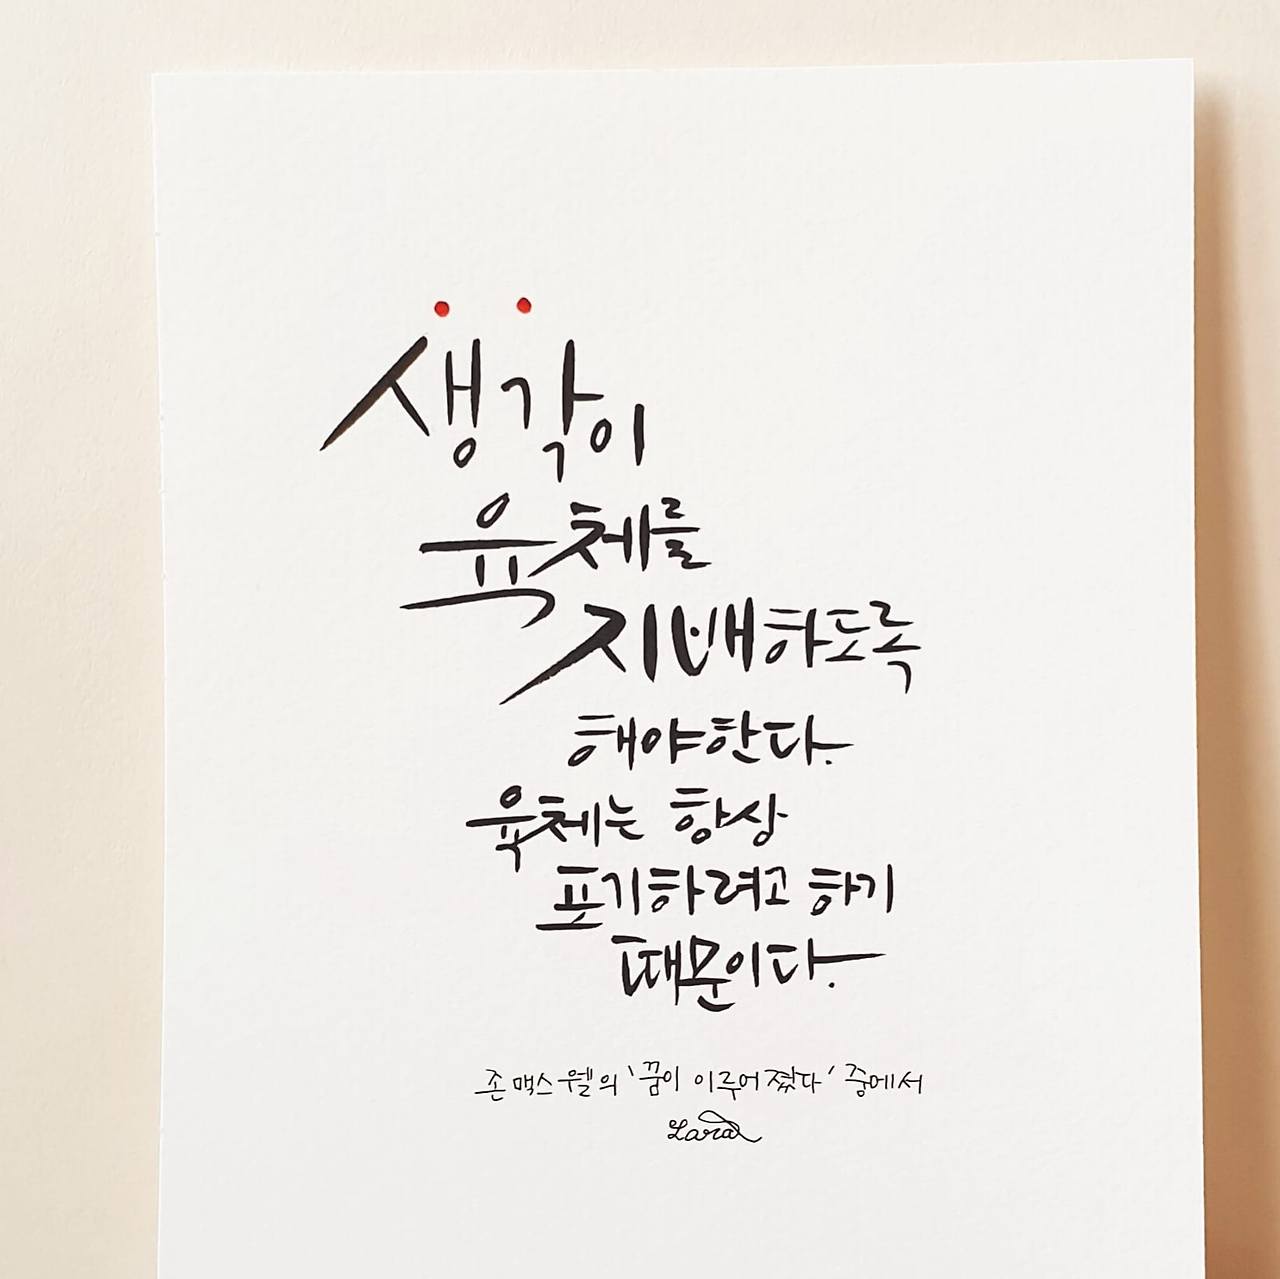 생각이
육체를
지배하도록
해야한다.
육체는 항상
포기하려고 하기
때문이다.
존 맥스웰의 '꿈이 이루어졌다' 중에서
Lara